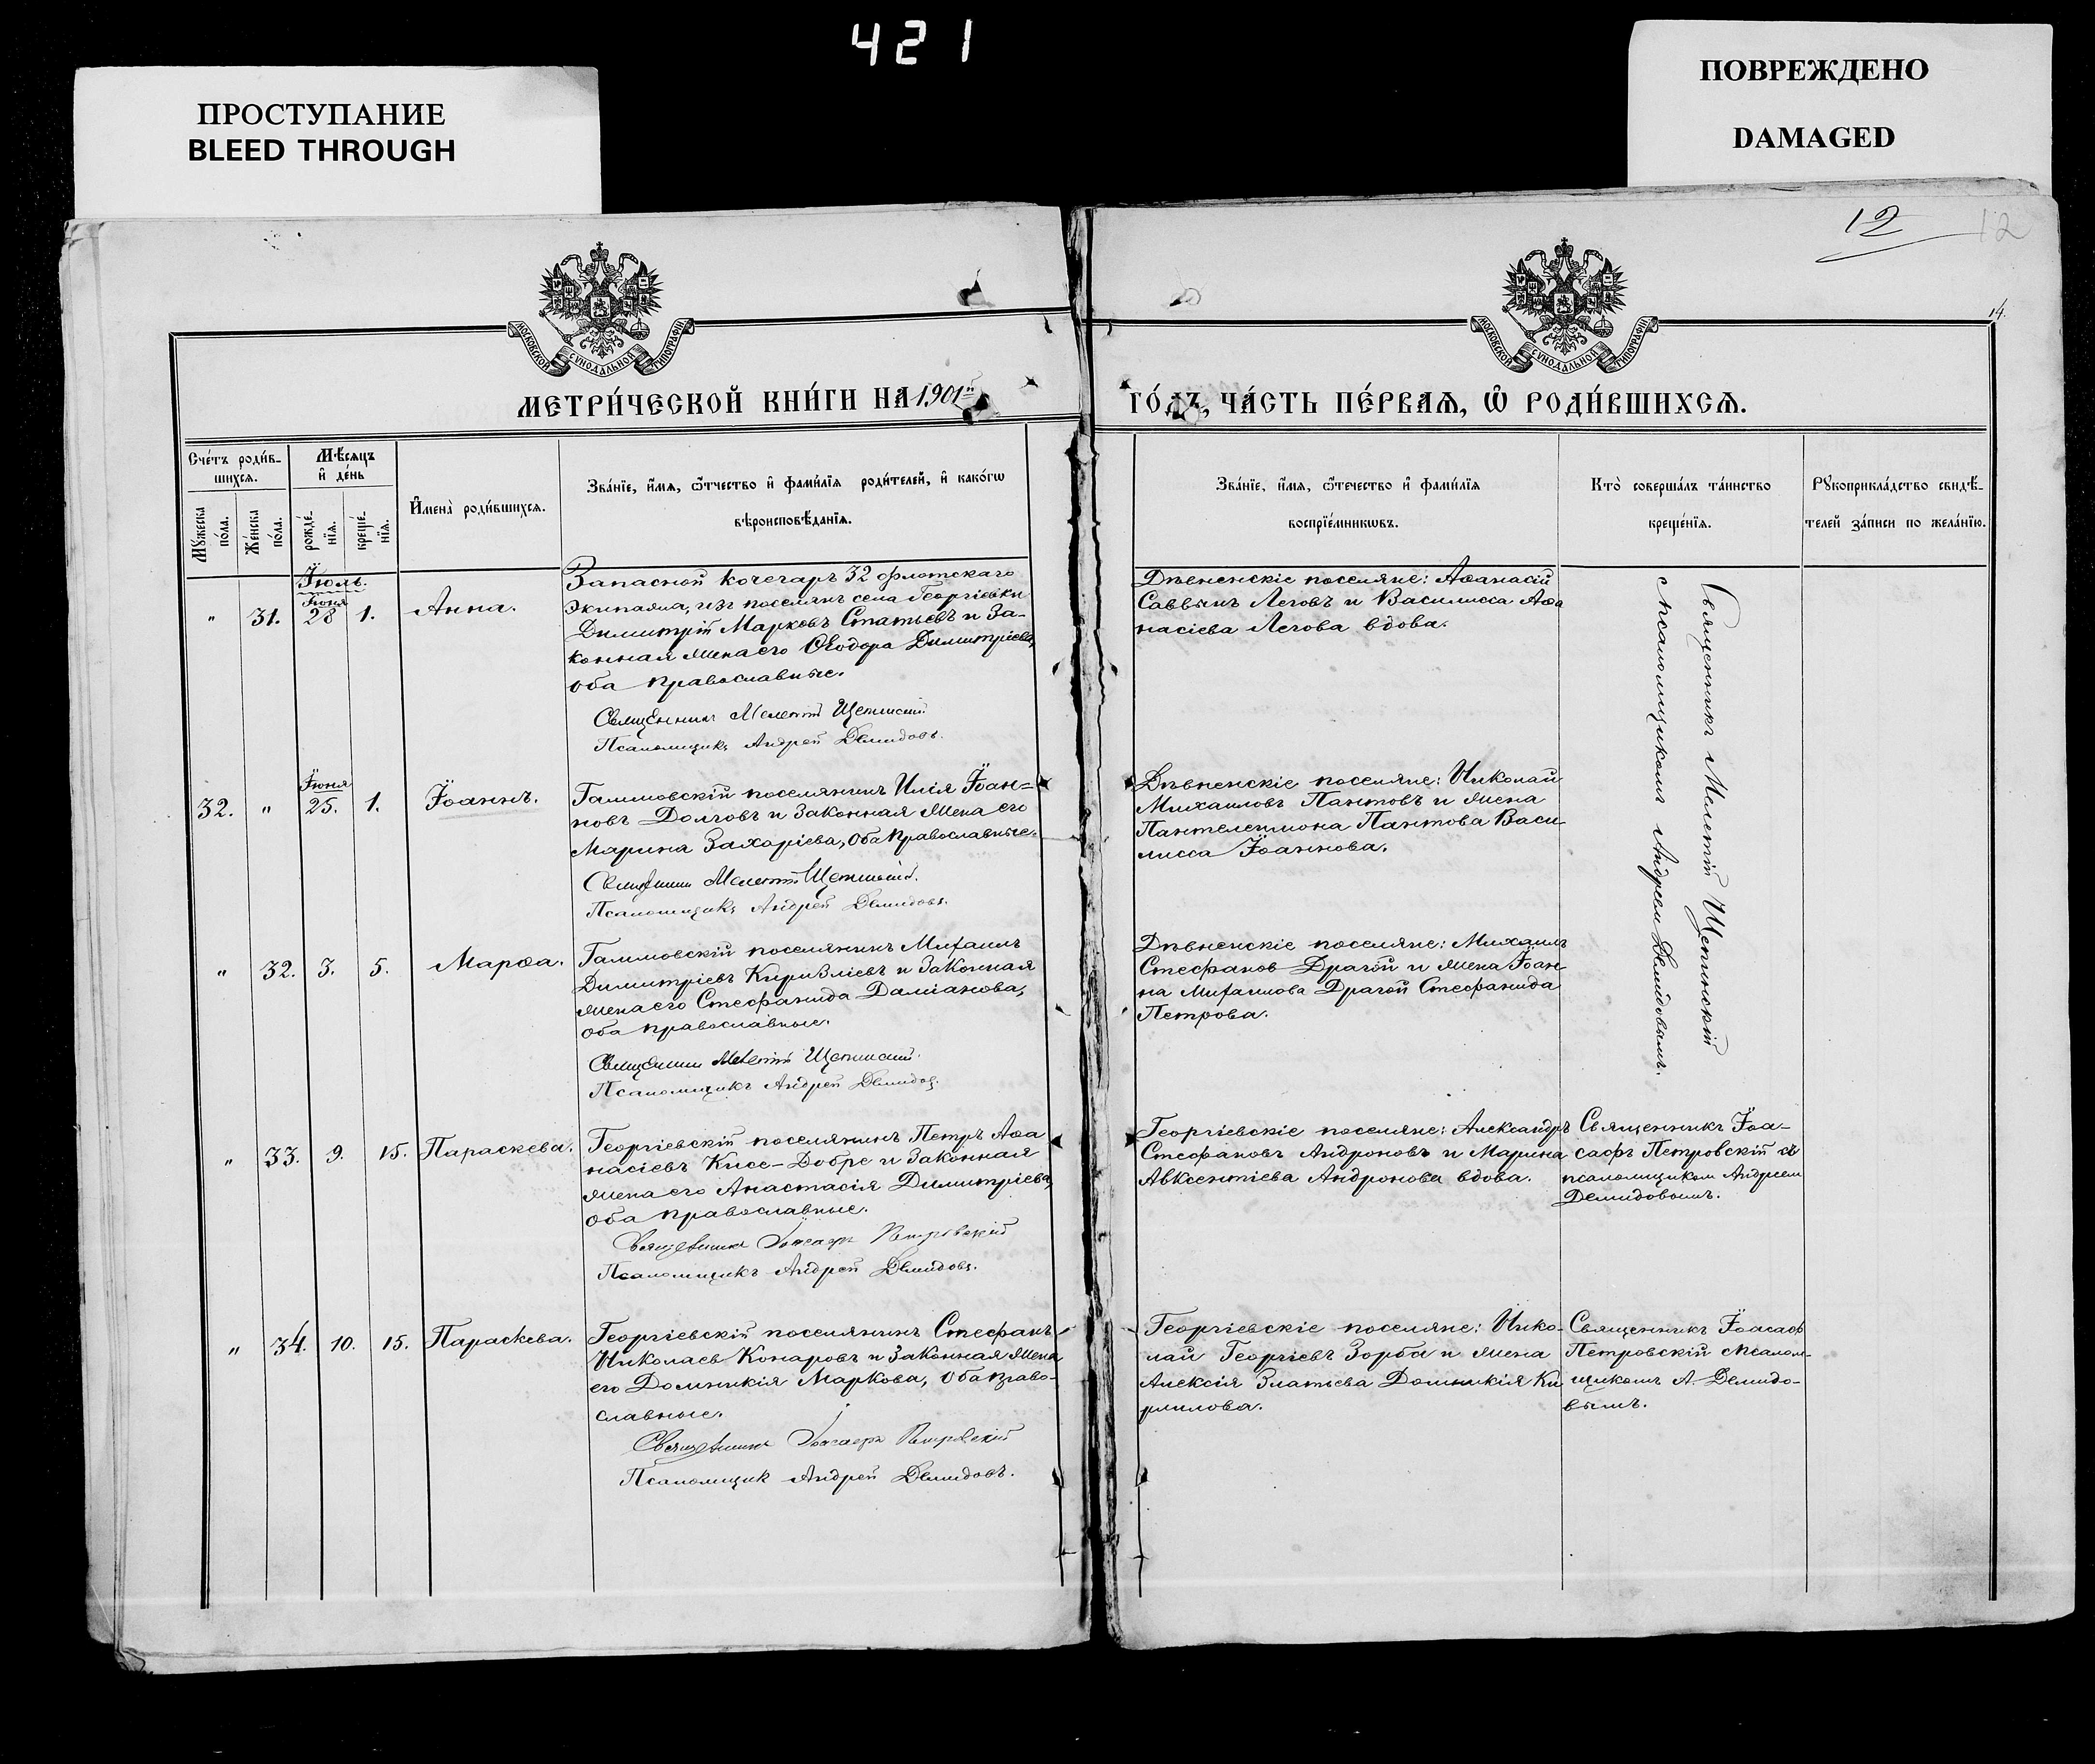 421
ПРОСТУПАНИЕ
BLEED THROUGH
ПОВРЕЖДЕНО
DAMAGED
12
12
14.
МОСКОВСКОЙ СѴНОДАЛЬНОЙ ТИПОГРАФІИ
МОСКОВСКОЙ СѴНОДАЛЬНОЙ ТИПОГРАФІИ
МЕТРИ́ЧЕСКОЙ КНИ́ГИ НА 1901й
ГО́ДЪ, ЧА́СТЬ ПЕ́РВАѦ, Ѡ РОДИ́ВШИХСѦ.
Сче́тъ роди́в-
шихсѧ.
Мѣ́сѧцъ
и҆ де́нь
Мꙋ́жеска
по́ла.
Же́нска
по́ла.
рожде́-
нїѧ.
креще́-
нїѧ.
И҆мена̀ роди́вшихсѧ.
Зва́нїе, и҆́мѧ, ѻ҆́тчество и҆ фами́лїѧ роди́телей, и҆ како́гѡ
вѣроисповѣ́данїѧ.
Зва́нїе, и҆́мѧ, ѻ҆́течество и҆ фами́лїѧ
воспрїе́мникѡвъ.
Кто̀ соверша́лъ та́инство
креще́нїѧ.
Рꙋкоприкла́дство свидѣ́-
телей за́писи по жела́нїю.
Іюль.
Іюня
" 31. 28 1. Анна.
Запасной кочегаръ 32 флотскаго
экипажа, изъ поселянъ села Георгіевки
Димитрій Марковъ Статьевъ и За-
конная жена его Ѳеодора Димитріева,
оба православные.
Священникъ Мелетій Щепинскій
Псаломщикъ Андрей Демидовъ.
Дѣвненскіе поселяне: Аѳанасій
Саввинъ Леговъ и Василисса Аѳа
насіева Легова вдова.
Священникъ Мелетій Щепинскій
с псаломщикомъ Андреем Демидовымъ.
Іюня
32. " 25. 1. Іоаннъ.
Галмовскій поселянинъ Илія Іоан=
новъ Долговъ и Законная жена его
Марина Захаріева, оба православные.
Священникъ Мелетій Щепинскій.
Псаломщикъ Андрей Демидовъ.
Дѣвненскіе поселяне: Николай
Михаиловъ Пантовъ и жена
Пантелеимона Пантова Васи
лисса Іоаннова.
" 32. 3. 5. Марѳа.
Галмовскій поселянинъ Михаилъ
Димитріевъ Киризліевъ и Законная
жена его Стефанида Даміанова,
оба православные.
Священникъ Мелетій Щепинскій.
Псаломщикъ Андрей Демидовъ.
Дѣвненскіе поселяне: Михаилъ
Стефанов Драгой и жена Іоан
на Михаилова Драгой Стефанида
Петрова.
" 33. 9. 15. Параскева.
Георгіевскій поселянинъ Петръ Аѳа
насіевъ Кисе-Добре и Законная
жена его Анастасія Димитріева,
оба православные.
Священникъ Іоасафъ Петровскій
Псаломщикъ Андрей Демидовъ.
Георгіевскіе поселяне: Александръ
Стефановъ Андроновъ и Марина
Авксентіева Андронова вдова.
Священникъ Іоа-
сафъ Петровскій съ
псаломщиком Андреем
Демидовымъ.
" 34. 10. 15. Параскева.
Георгіевскій поселянинъ Стефанъ
Николаев Конаровъ и Законная жена
его Домникія Маркова, оба право-
славные.
Священникъ Іоасафъ Петровскій
Псаломщик Андрей Демидовъ.
Георгіевскіе поселяне: Нико-
лай Георгіевъ Зорба и жена
Алексія Златьева Домникія Ки
рилова.
Священникъ Іоасаф
Петровскій с псалом-
щикомъ А. Демидо-
вымъ.